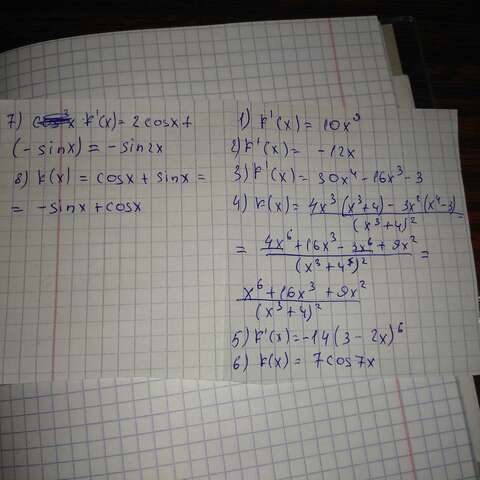 7) k'(x) = 2 cosx +
(- sinx) = - sin2x
8) k(x) = cosx + sinx =
= - sinx + cosx
1) k'(x) = 10x⁹
2) k'(x) = -12x
3) k'(x) = 30x⁴ - 16x³ - 3
4) k(x) = 4x³(x³+4) - 3x²(x⁴-3) / (x³+4)² =
= 4x⁶ + 16x³ - 3x⁶ + 9x² / (x³+4)² =
x⁶ + 16x³ + 9x² / (x³+4)²
5) k'(x) = -14(3 - 2x)⁶
6) k(x) = 7cos7x